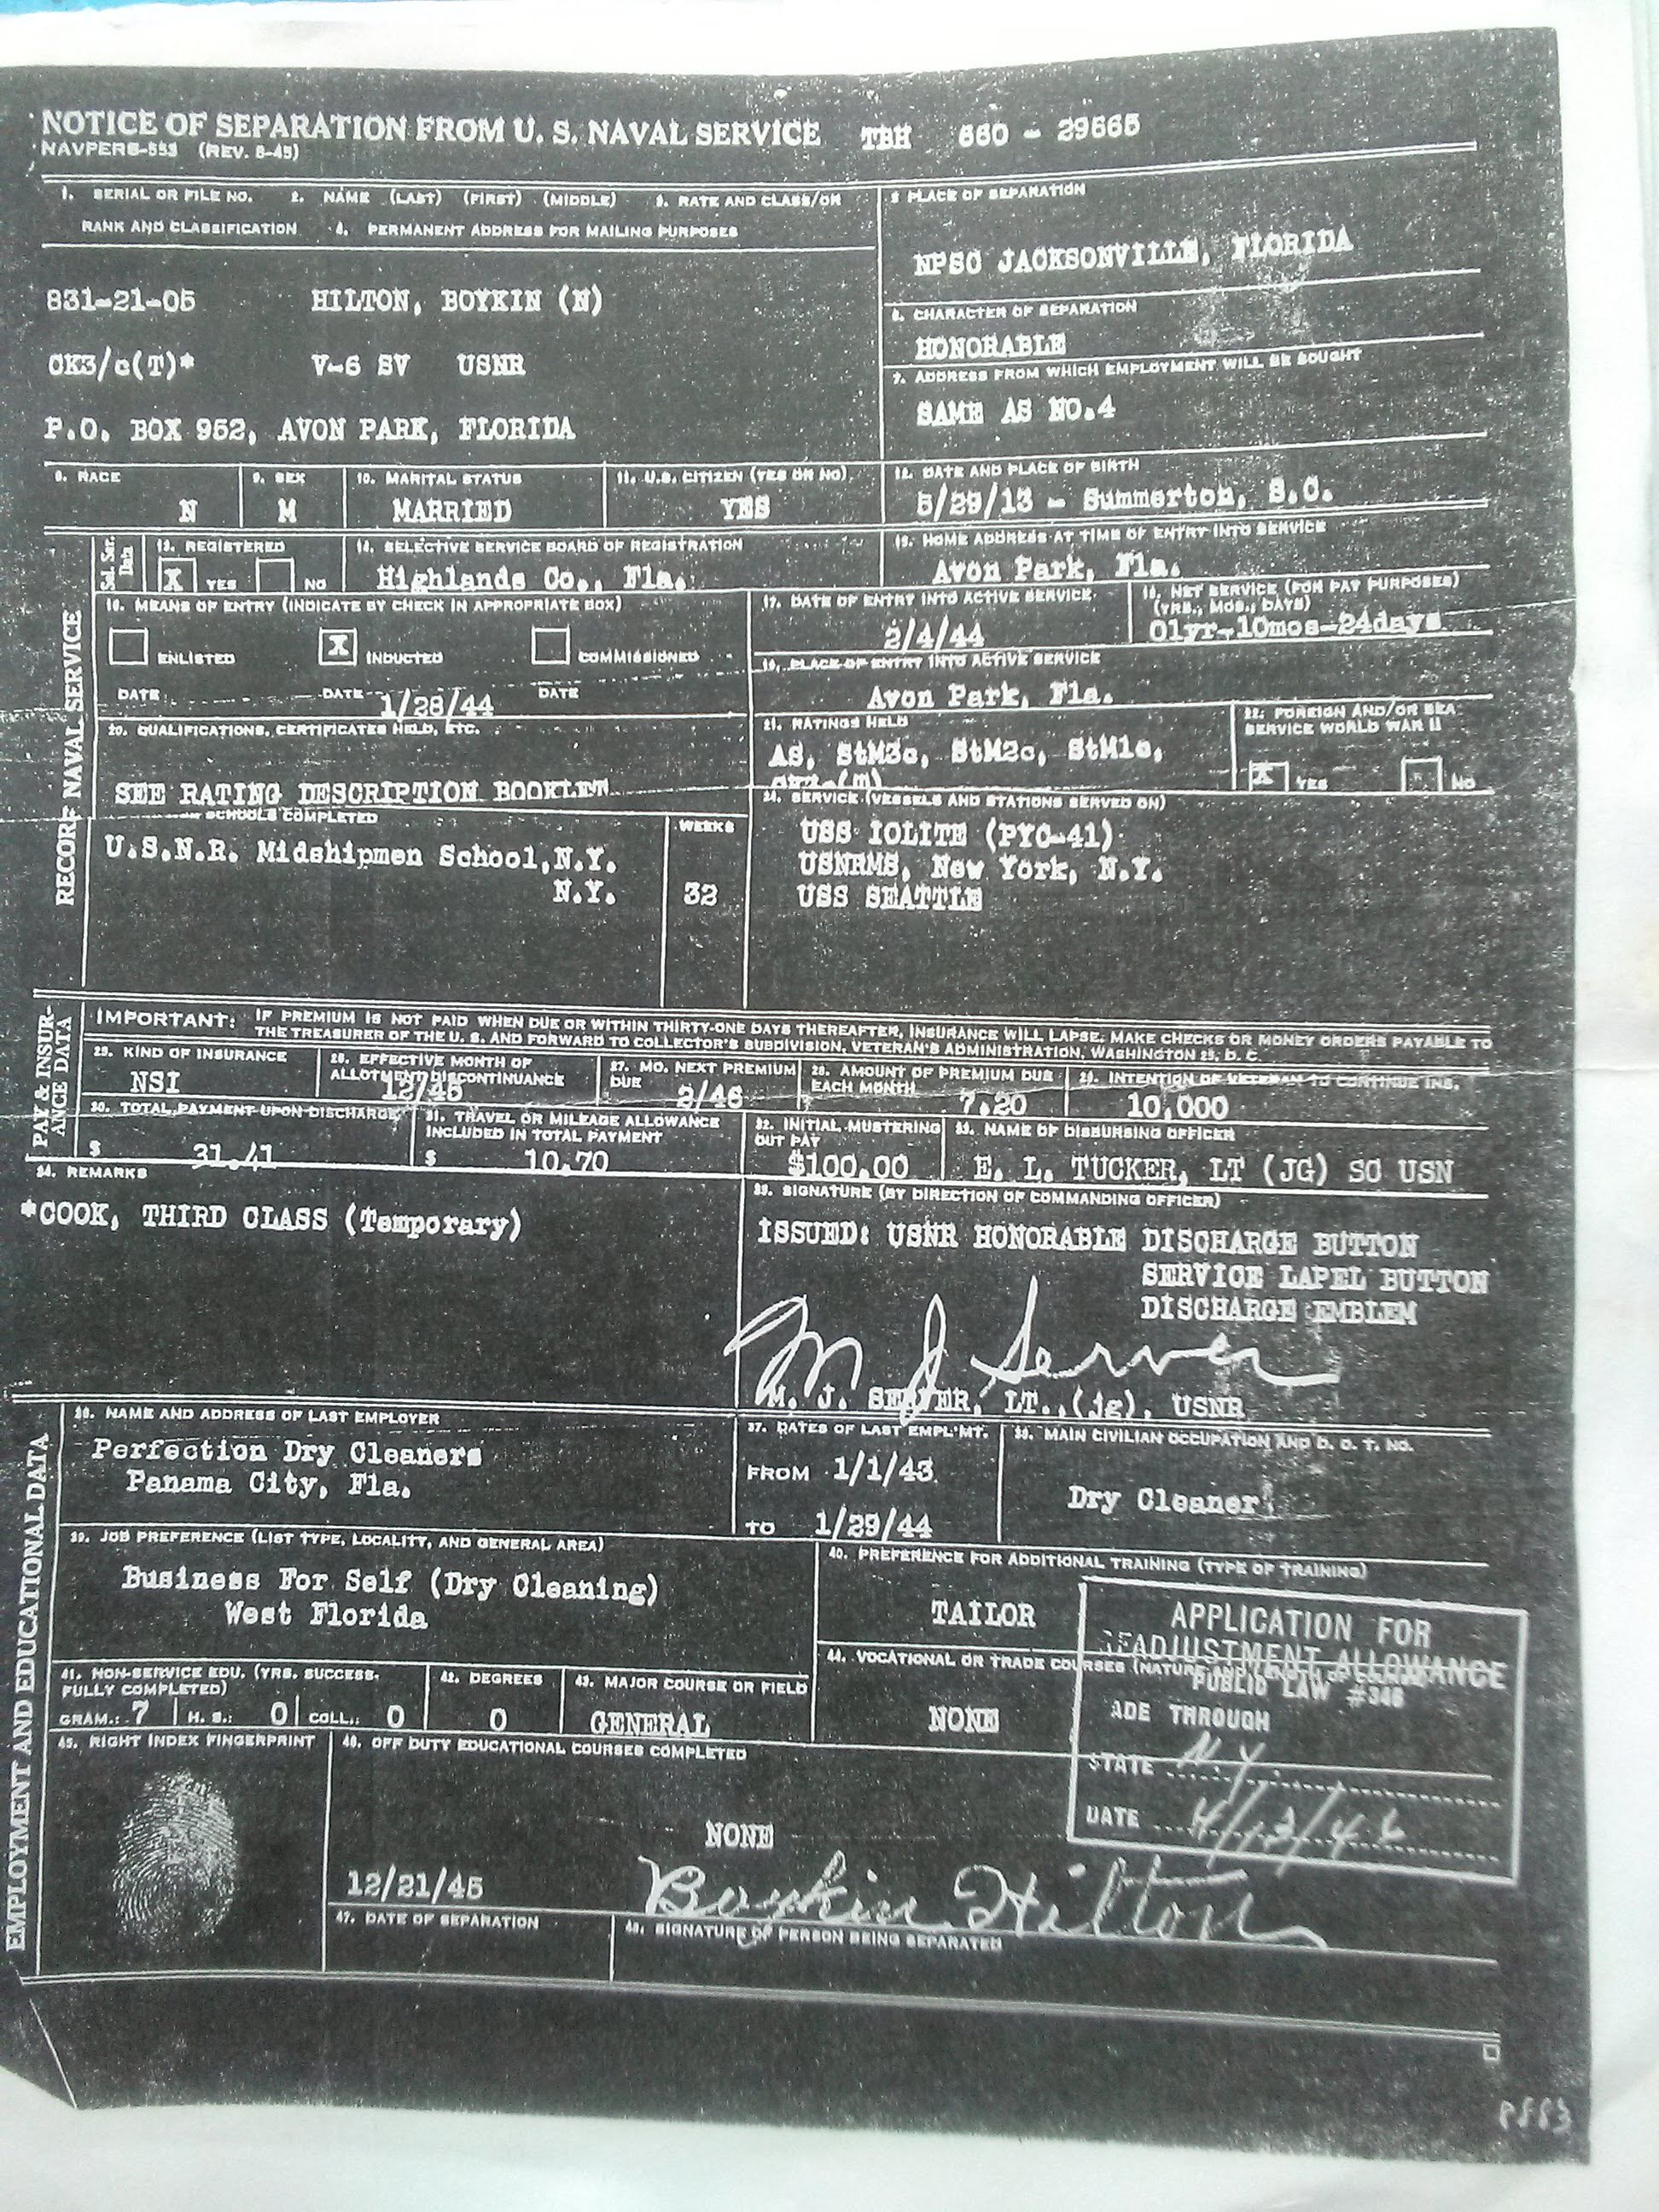 NOTICE OF SEPARATION FROM U. S. NAVAL SERVICE TBH 660 - 29665
NAVPERS-553 (REV. 8-45)
1. SERIAL OR FILE NO. 2. NAME (LAST) (FIRST) (MIDDLE) 3. RATE AND CLASS/OR
RANK AND CLASSIFICATION 4. PERMANENT ADDRESS FOR MAILING PURPOSES
831-21-05 HILTON, BOYKIN (N)
CK3/c(T)* V-6 SV USNR
P.O. BOX 952, AVON PARK, FLORIDA
5 PLACE OF SEPARATION
NPSC JACKSONVILLE, FLORIDA
6. CHARACTER OF SEPARATION
HONORABLE
7. ADDRESS FROM WHICH EMPLOYMENT WILL BE SOUGHT
SAME AS NO.4
8. RACE 9. SEX 10. MARITAL STATUS 11. U.S. CITIZEN (YES OR NO) 12. DATE AND PLACE OF BIRTH
N M MARRIED YES 5/29/13 - Summerton, S.C.
RECORD NAVAL SERVICE
Sel. Ser. Data
13. REGISTERED 14. SELECTIVE SERVICE BOARD OF REGISTRATION 15. HOME ADDRESS AT TIME OF ENTRY INTO SERVICE
X YES NO Highlands Co., Fla. Avon Park, Fla.
16. MEANS OF ENTRY (INDICATE BY CHECK IN APPROPRIATE BOX)
ENLISTED X INDUCTED COMMISSIONED
DATE DATE 1/28/44 DATE
17. DATE OF ENTRY INTO ACTIVE SERVICE
2/4/44
18. NET SERVICE (FOR PAY PURPOSES)
(YRS., MOS., DAYS)
01yr-10mos-24days
19. PLACE OF ENTRY INTO ACTIVE SERVICE
Avon Park, Fla.
20. QUALIFICATIONS, CERTIFICATES HELD, ETC.
SEE RATING DESCRIPTION BOOKLET
21. RATINGS HELD
AS, StM3c, StM2c, StM1c,
22. FOREIGN AND/OR SEA
SERVICE WORLD WAR II
X YES NO
SCHOOLS COMPLETED WEEKS
U.S.N.R. Midshipmen School, N.Y.
N.Y. 32
24. SERVICE (VESSELS AND STATIONS SERVED ON)
USS IOLITE (PYC-41)
USNRMS, New York, N.Y.
USS SEATTLE
PAY & INSURANCE DATA
IMPORTANT: IF PREMIUM IS NOT PAID WHEN DUE OR WITHIN THIRTY-ONE DAYS THEREAFTER, INSURANCE WILL LAPSE. MAKE CHECKS OR MONEY ORDERS PAYABLE TO
THE TREASURER OF THE U. S. AND FORWARD TO COLLECTOR'S SUBDIVISION, VETERAN'S ADMINISTRATION, WASHINGTON 25, D. C.
25. KIND OF INSURANCE
NSI
26. EFFECTIVE MONTH OF
ALLOTMENT DISCONTINUANCE
12/45
27. MO. NEXT PREMIUM
DUE
2/46
28. AMOUNT OF PREMIUM DUE
EACH MONTH
7.20
29. INTENTION OF VETERAN TO CONTINUE INS.
10,000
30. TOTAL PAYMENT UPON DISCHARGE
$ 31.41
31. TRAVEL OR MILEAGE ALLOWANCE
INCLUDED IN TOTAL PAYMENT
$ 10.70
32. INITIAL MUSTERING
OUT PAY
$100.00
33. NAME OF DISBURSING OFFICER
E. L. TUCKER, LT (JG) SC USN
34. REMARKS
*COOK, THIRD CLASS (Temporary)
35. SIGNATURE (BY DIRECTION OF COMMANDING OFFICER)
ISSUED: USNR HONORABLE DISCHARGE BUTTON
SERVICE LAPEL BUTTON
DISCHARGE EMBLEM
M J Server
M. J. SERVER, LT.,(jg), USNR
EMPLOYMENT AND EDUCATIONAL DATA
36. NAME AND ADDRESS OF LAST EMPLOYER
Perfection Dry Cleaners
Panama City, Fla.
37. DATES OF LAST EMPL'MT.
FROM 1/1/43
TO 1/29/44
38. MAIN CIVILIAN OCCUPATION AND D. O. T. NO.
Dry Cleaner
39. JOB PREFERENCE (LIST TYPE, LOCALITY, AND GENERAL AREA)
Business For Self (Dry Cleaning)
West Florida
40. PREFERENCE FOR ADDITIONAL TRAINING (TYPE OF TRAINING)
TAILOR
41. NON-SERVICE EDU. (YRS. SUCCESS-
FULLY COMPLETED)
GRAM.: 7 H. S.: 0 COLL.: 0
42. DEGREES
0
43. MAJOR COURSE OR FIELD
GENERAL
44. VOCATIONAL OR TRADE COURSES (NATURE AND LENGTH OF
NONE
APPLICATION FOR
READJUSTMENT ALLOWANCE
PUBLIC LAW #346
ADE THROUGH
STATE N.Y.
DATE 4/12/46
45. RIGHT INDEX FINGERPRINT
46. OFF DUTY EDUCATIONAL COURSES COMPLETED
NONE
12/21/45
47. DATE OF SEPARATION
Boykin Hilton
48. SIGNATURE OF PERSON BEING SEPARATED